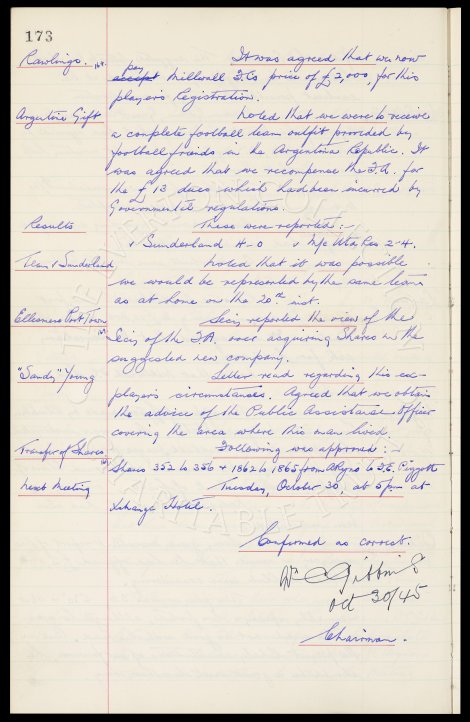 173
Rawlings. It was agreed that we now
pay accept Millwall F.C's price of £2,000, for this
player's Registration.
Argentine Gift Noted that we were to receive
a complete football team outfit provided by
football friends in the Argentina Republic. It
was agreed that we recompense the F.A. for
the £13 dues which had been incurred by
Governmental regulations.
Results These were reported:-
v Sunderland H-0 v M/c Utd Res 2-4.
Team v Sunderland Noted that it was possible
we would be represented by the same team
as at home on the 20th inst.
Ellesmere Port Town Secy reported the view of the
Secy of the F.A. over acquiring Shares in the
suggested new company.
"Sandy" Young Letter read regarding this ex-
player's circumstances. Agreed that we obtain
the advice of the Public Assistance Officer
covering the area where this man lived.
Transfer of Shares Following was approved:-
Shares 352 to 356 + 1862 to 1865 from to
Next Meeting Tuesday, October 30, at 5pm at
Xchange Hotel.
Confirmed as correct.
W C Gibbins
Oct 30/45
Chairman.